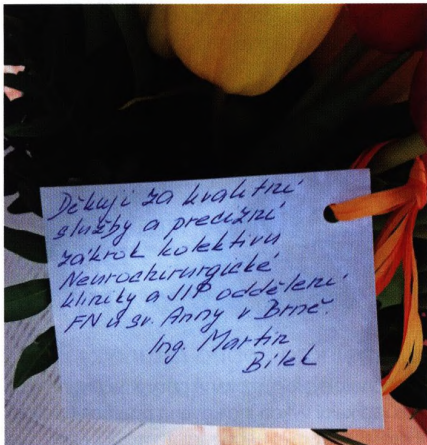 Děkuji za kvalitní
služby a precizní
zákrok kolektivu
Neurochirurgické
kliniky a JIP oddělení
FN u sv. Anny v Brně.
Ing. Martin
Bílek